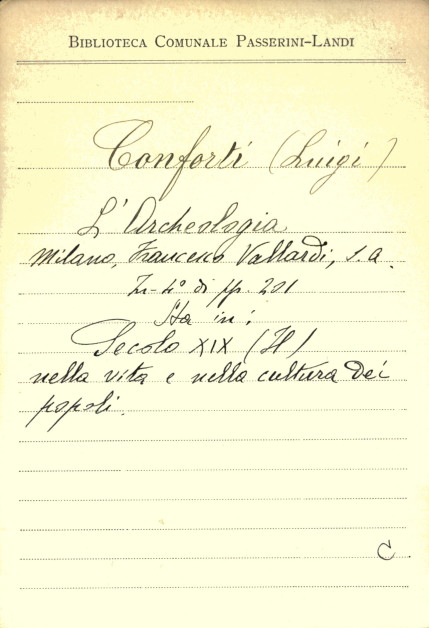 BIBLIOTECA COMUNALE PASSERINI-LANDI
Conforti (Luigi)
L'Archeologia
Milano, Francesco Vallardi, s. a.
In-4° di pp. 201
Sta in:
Secolo XIX (Il)
nella vita e nella cultura dei
popoli.
C